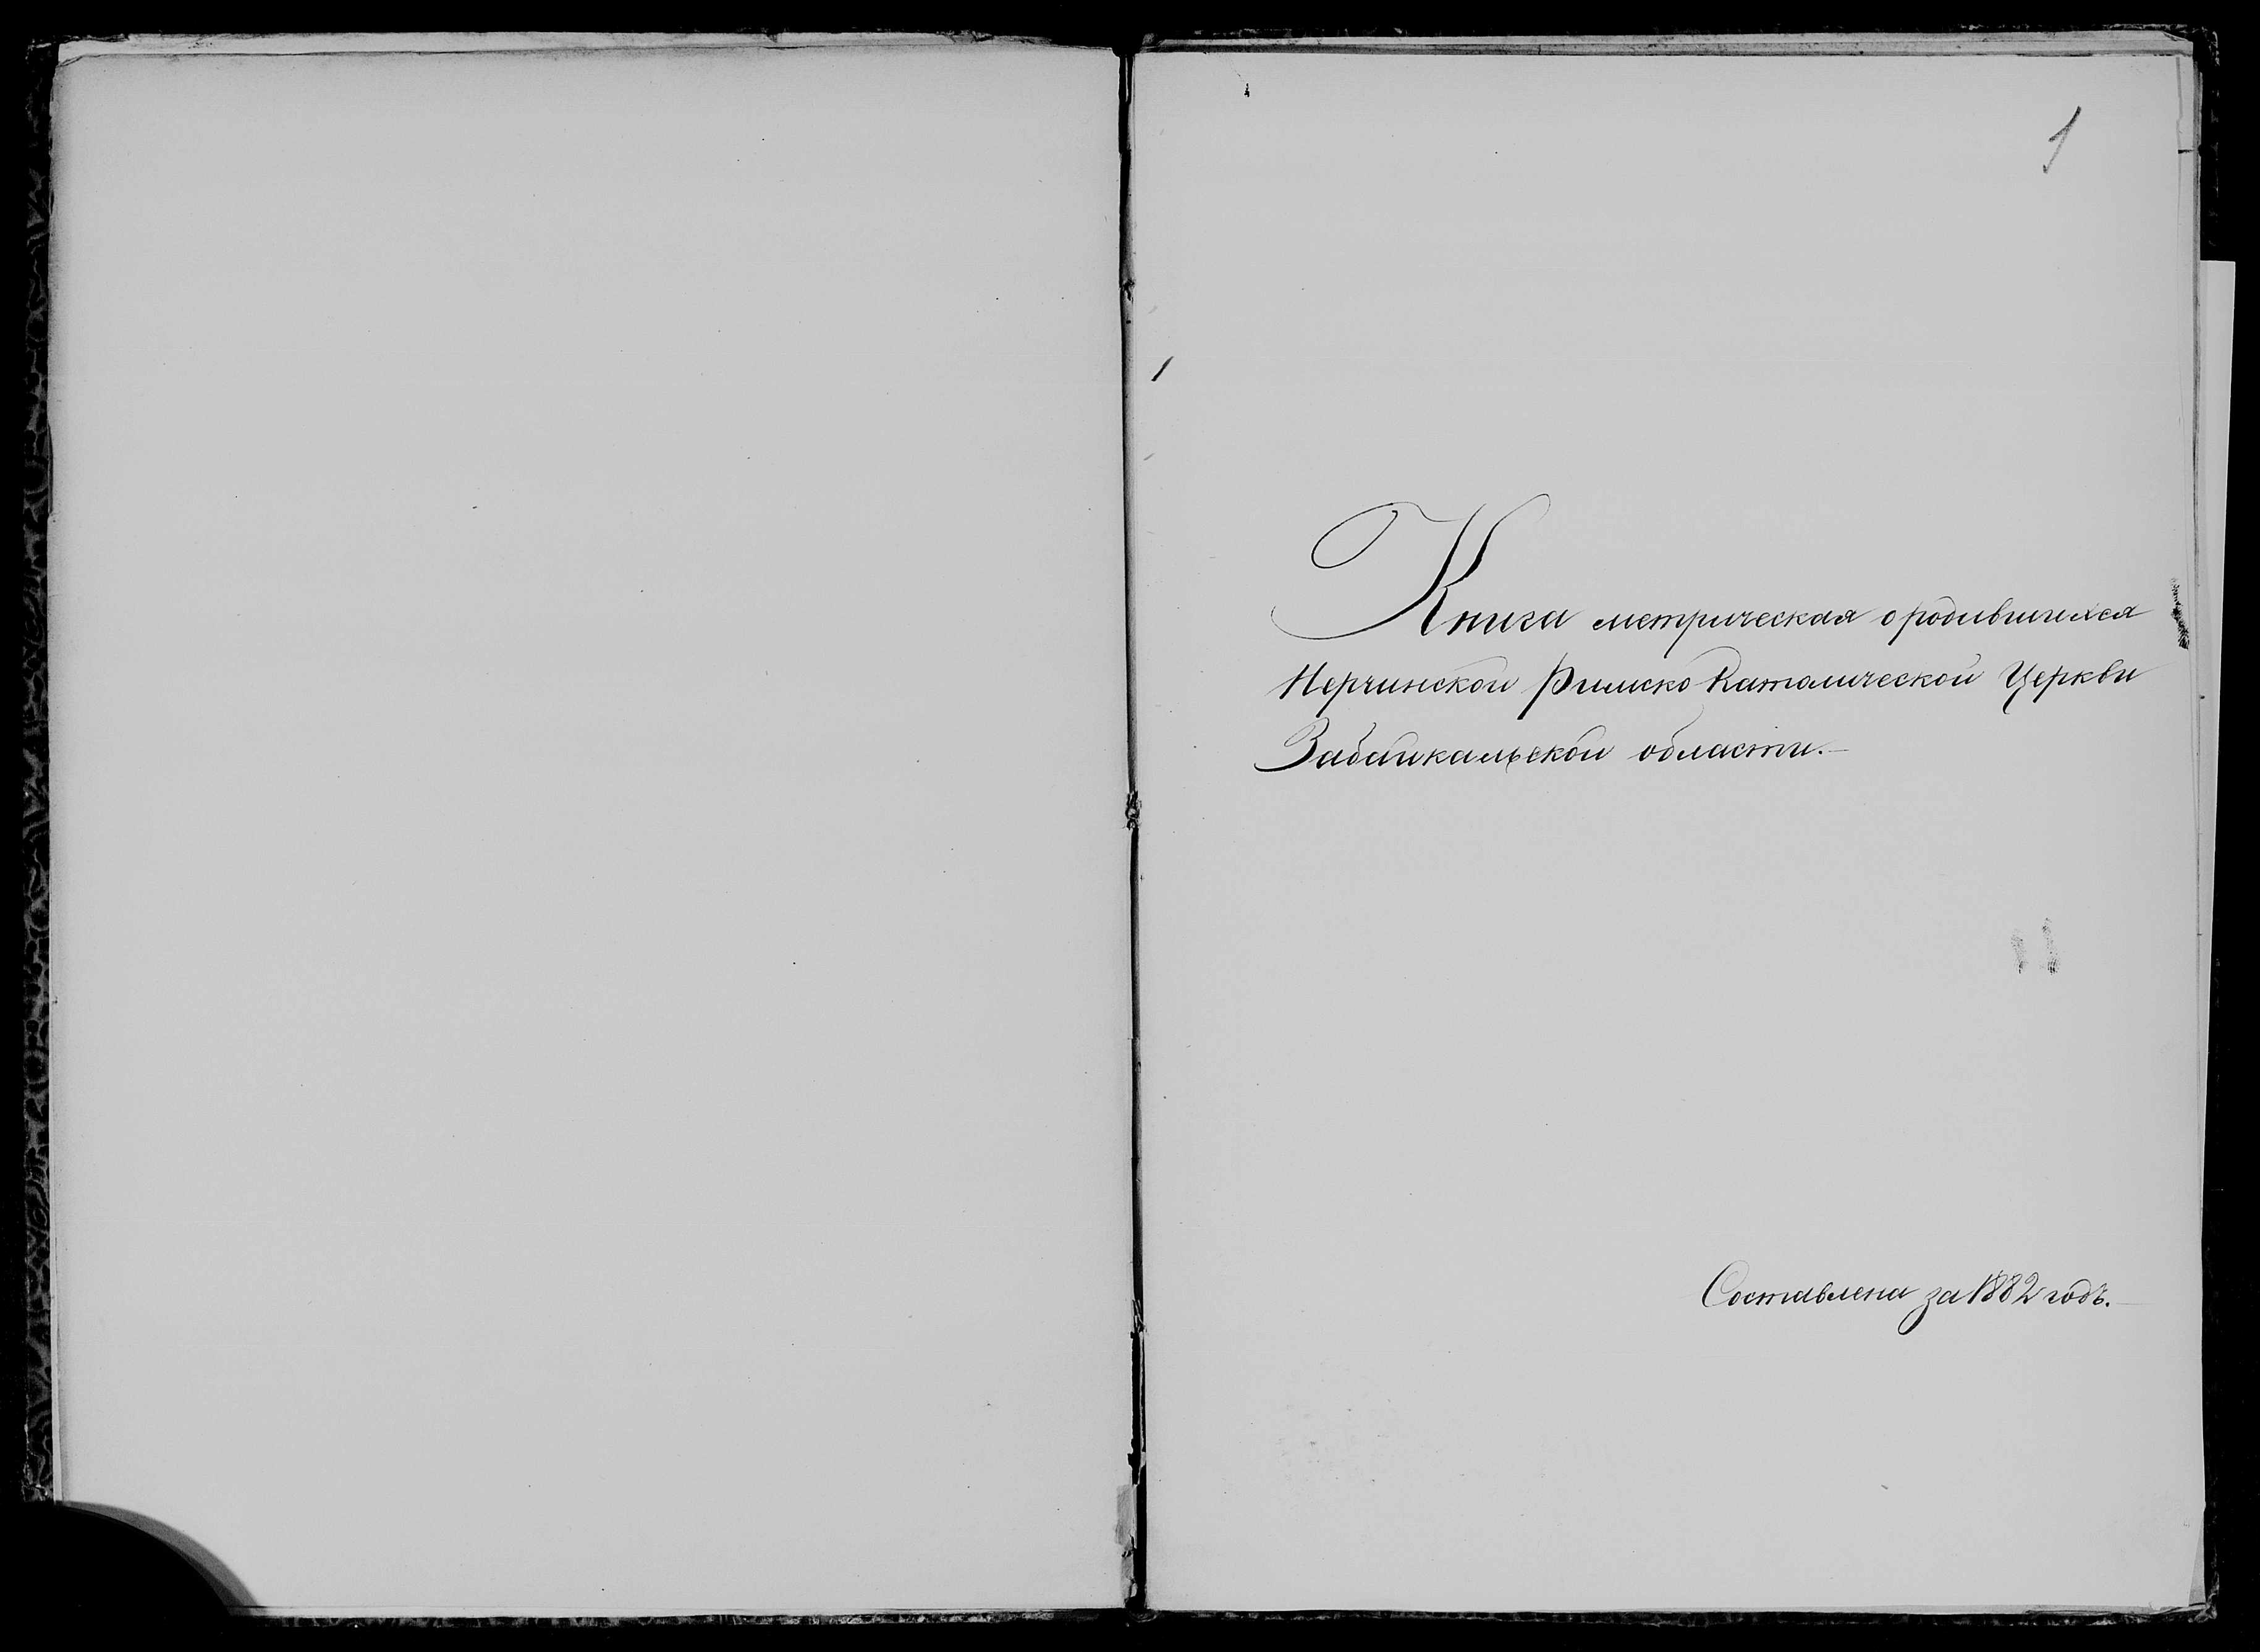 1
Книга метрическая о родившихся
Нерчинской Римско Католической Церкви
Забайкальской области.—
Составлена за 1882 годъ.—